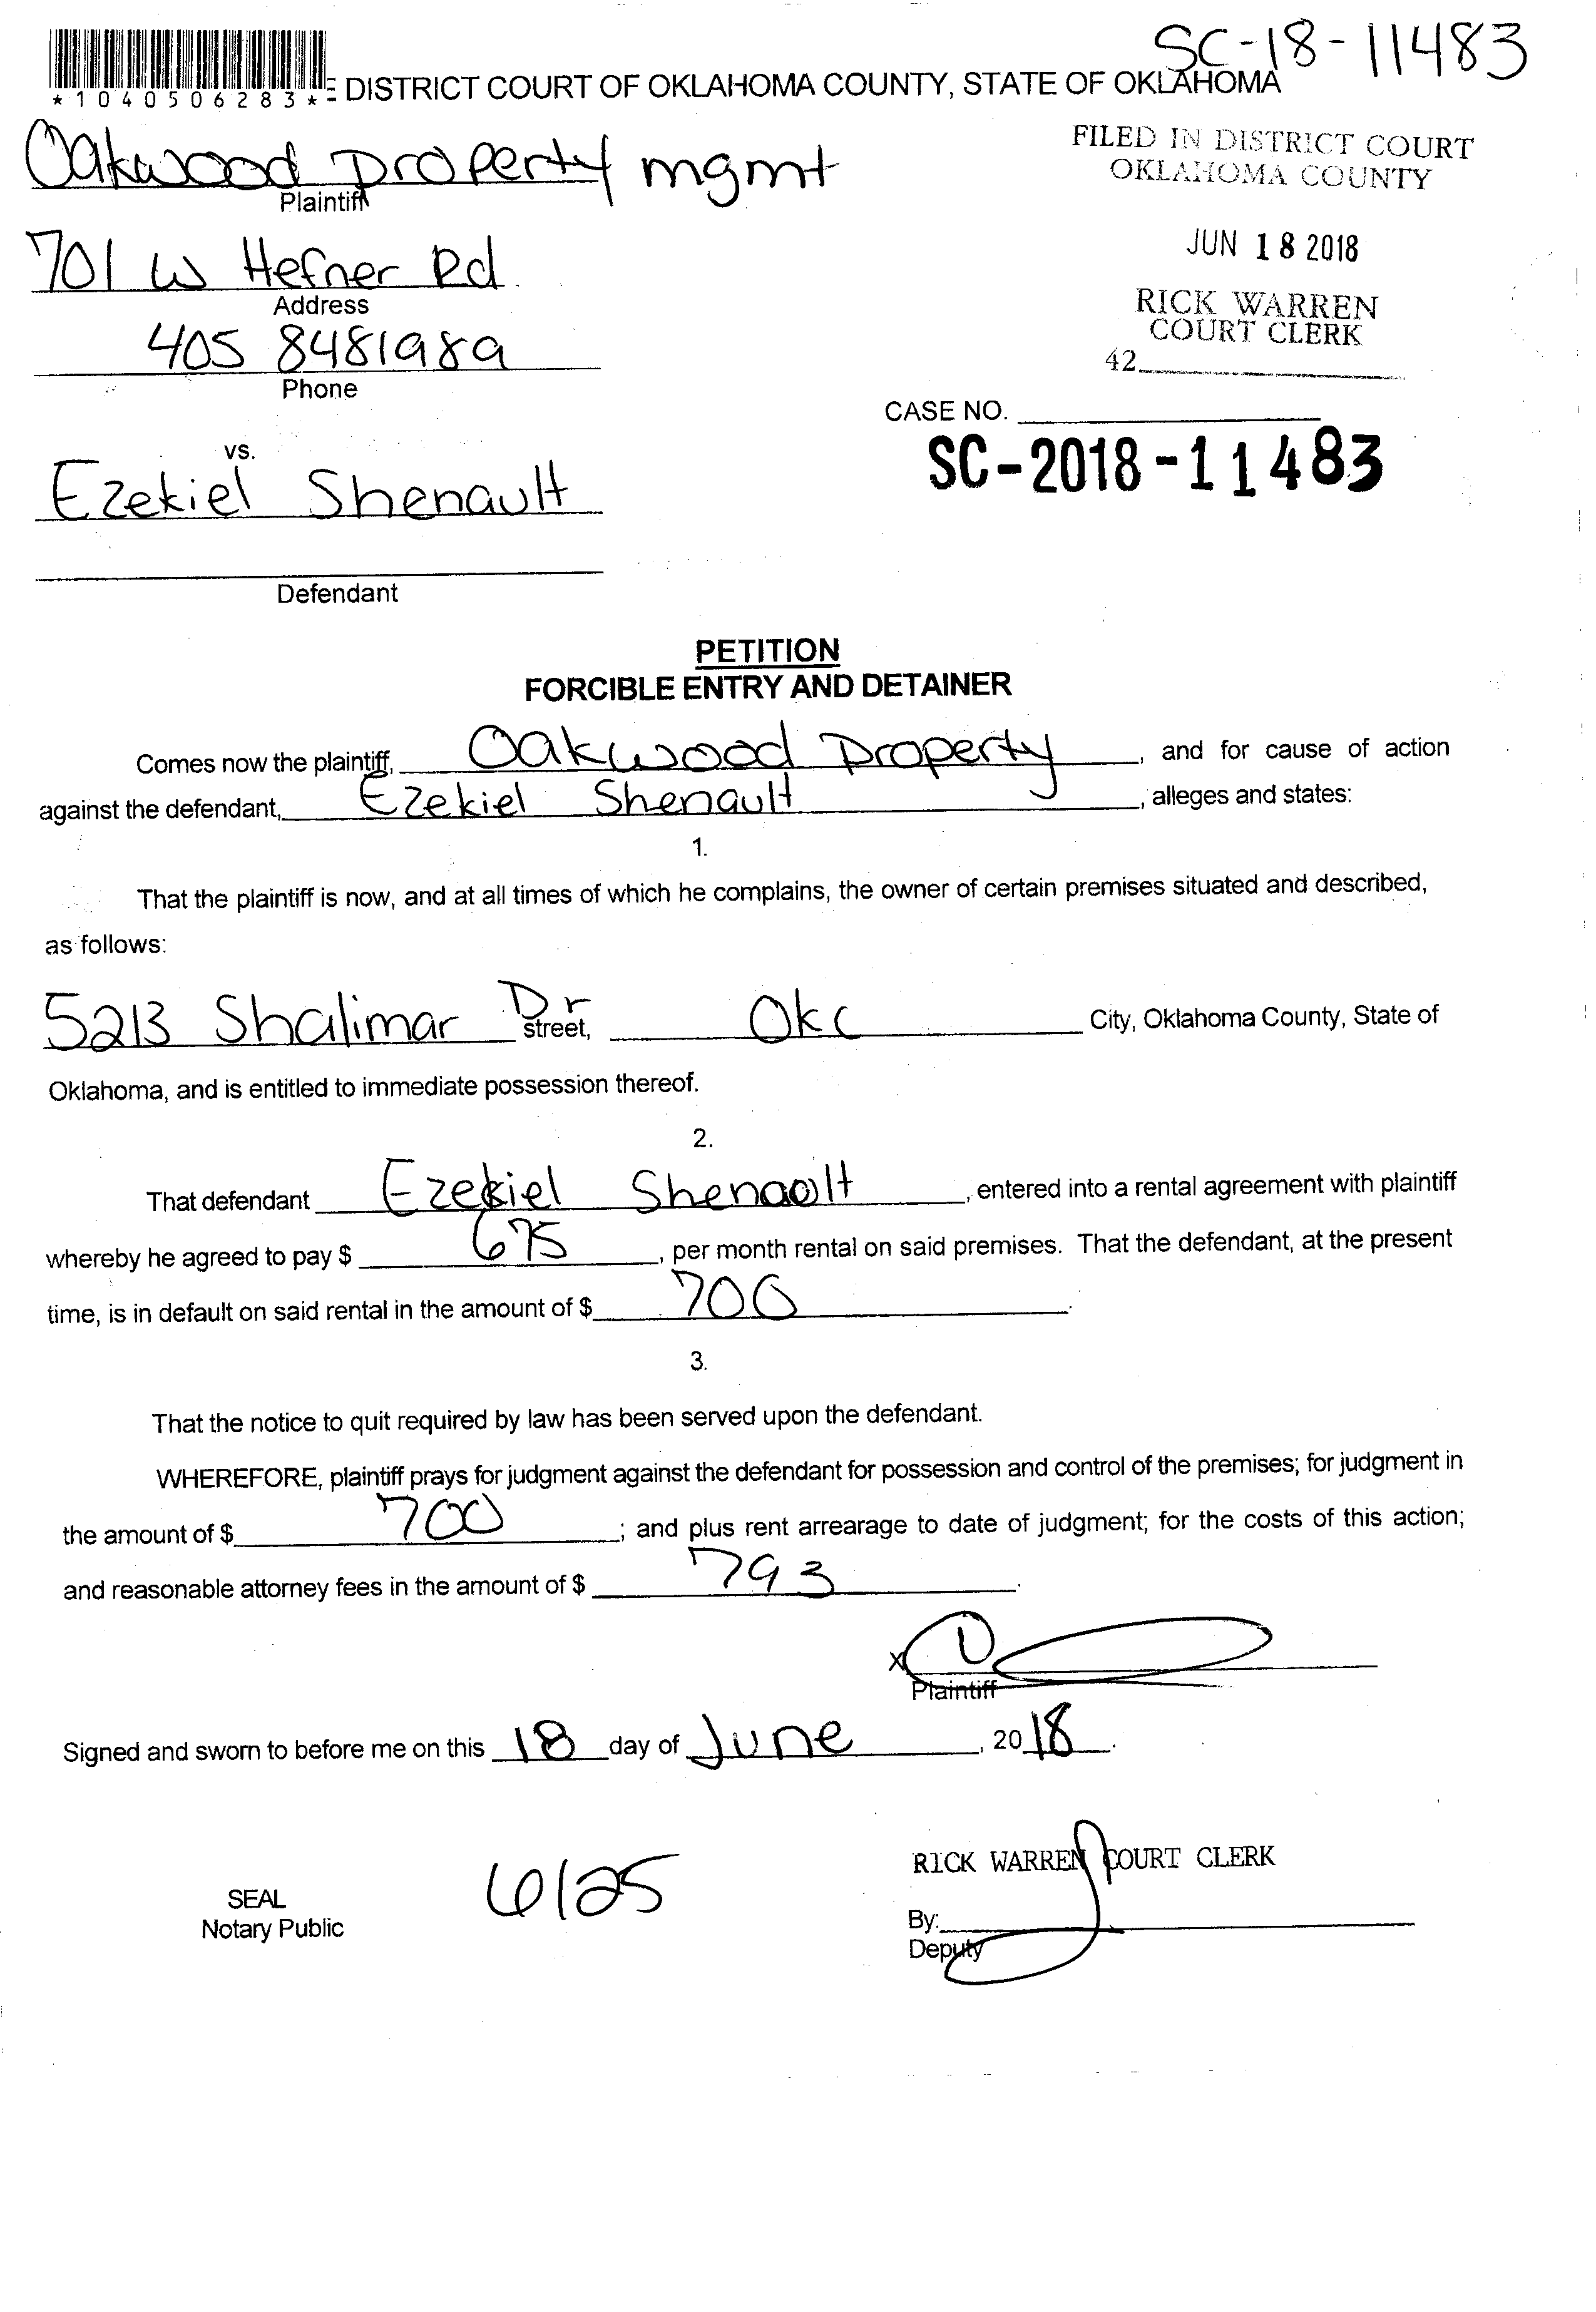 SC-18-11483
*1040506283*
DISTRICT COURT OF OKLAHOMA COUNTY, STATE OF OKLAHOMA
Oakwood Property mgmt
Plaintiff
FILED IN DISTRICT COURT
OKLAHOMA COUNTY
JUN 18 2018
RICK WARREN
COURT CLERK
42
701 W Hefner Rd
Address
405 8481989
Phone
CASE NO.
SC-2018-11483
vs.
Ezekiel Shenault
Defendant
PETITION
FORCIBLE ENTRY AND DETAINER
Comes now the plaintiff, Oakwood Property, and for cause of action
against the defendant, Ezekiel Shenault, alleges and states:
1.
That the plaintiff is now, and at all times of which he complains, the owner of certain premises situated and described,
as follows:
5213 Shalimar Dr street, Okc City, Oklahoma County, State of
Oklahoma, and is entitled to immediate possession thereof.
2.
That defendant Ezekiel Shenault, entered into a rental agreement with plaintiff
whereby he agreed to pay $ 675, per month rental on said premises. That the defendant, at the present
time, is in default on said rental in the amount of $ 700.
3.
That the notice to quit required by law has been served upon the defendant.
WHEREFORE, plaintiff prays for judgment against the defendant for possession and control of the premises; for judgment in
the amount of $ 700; and plus rent arrearage to date of judgment; for the costs of this action;
and reasonable attorney fees in the amount of $ 793.
X
Plaintiff
Signed and sworn to before me on this 18 day of June, 2018.
RICK WARREN COURT CLERK
SEAL
Notary Public
6/25
By:
Deputy